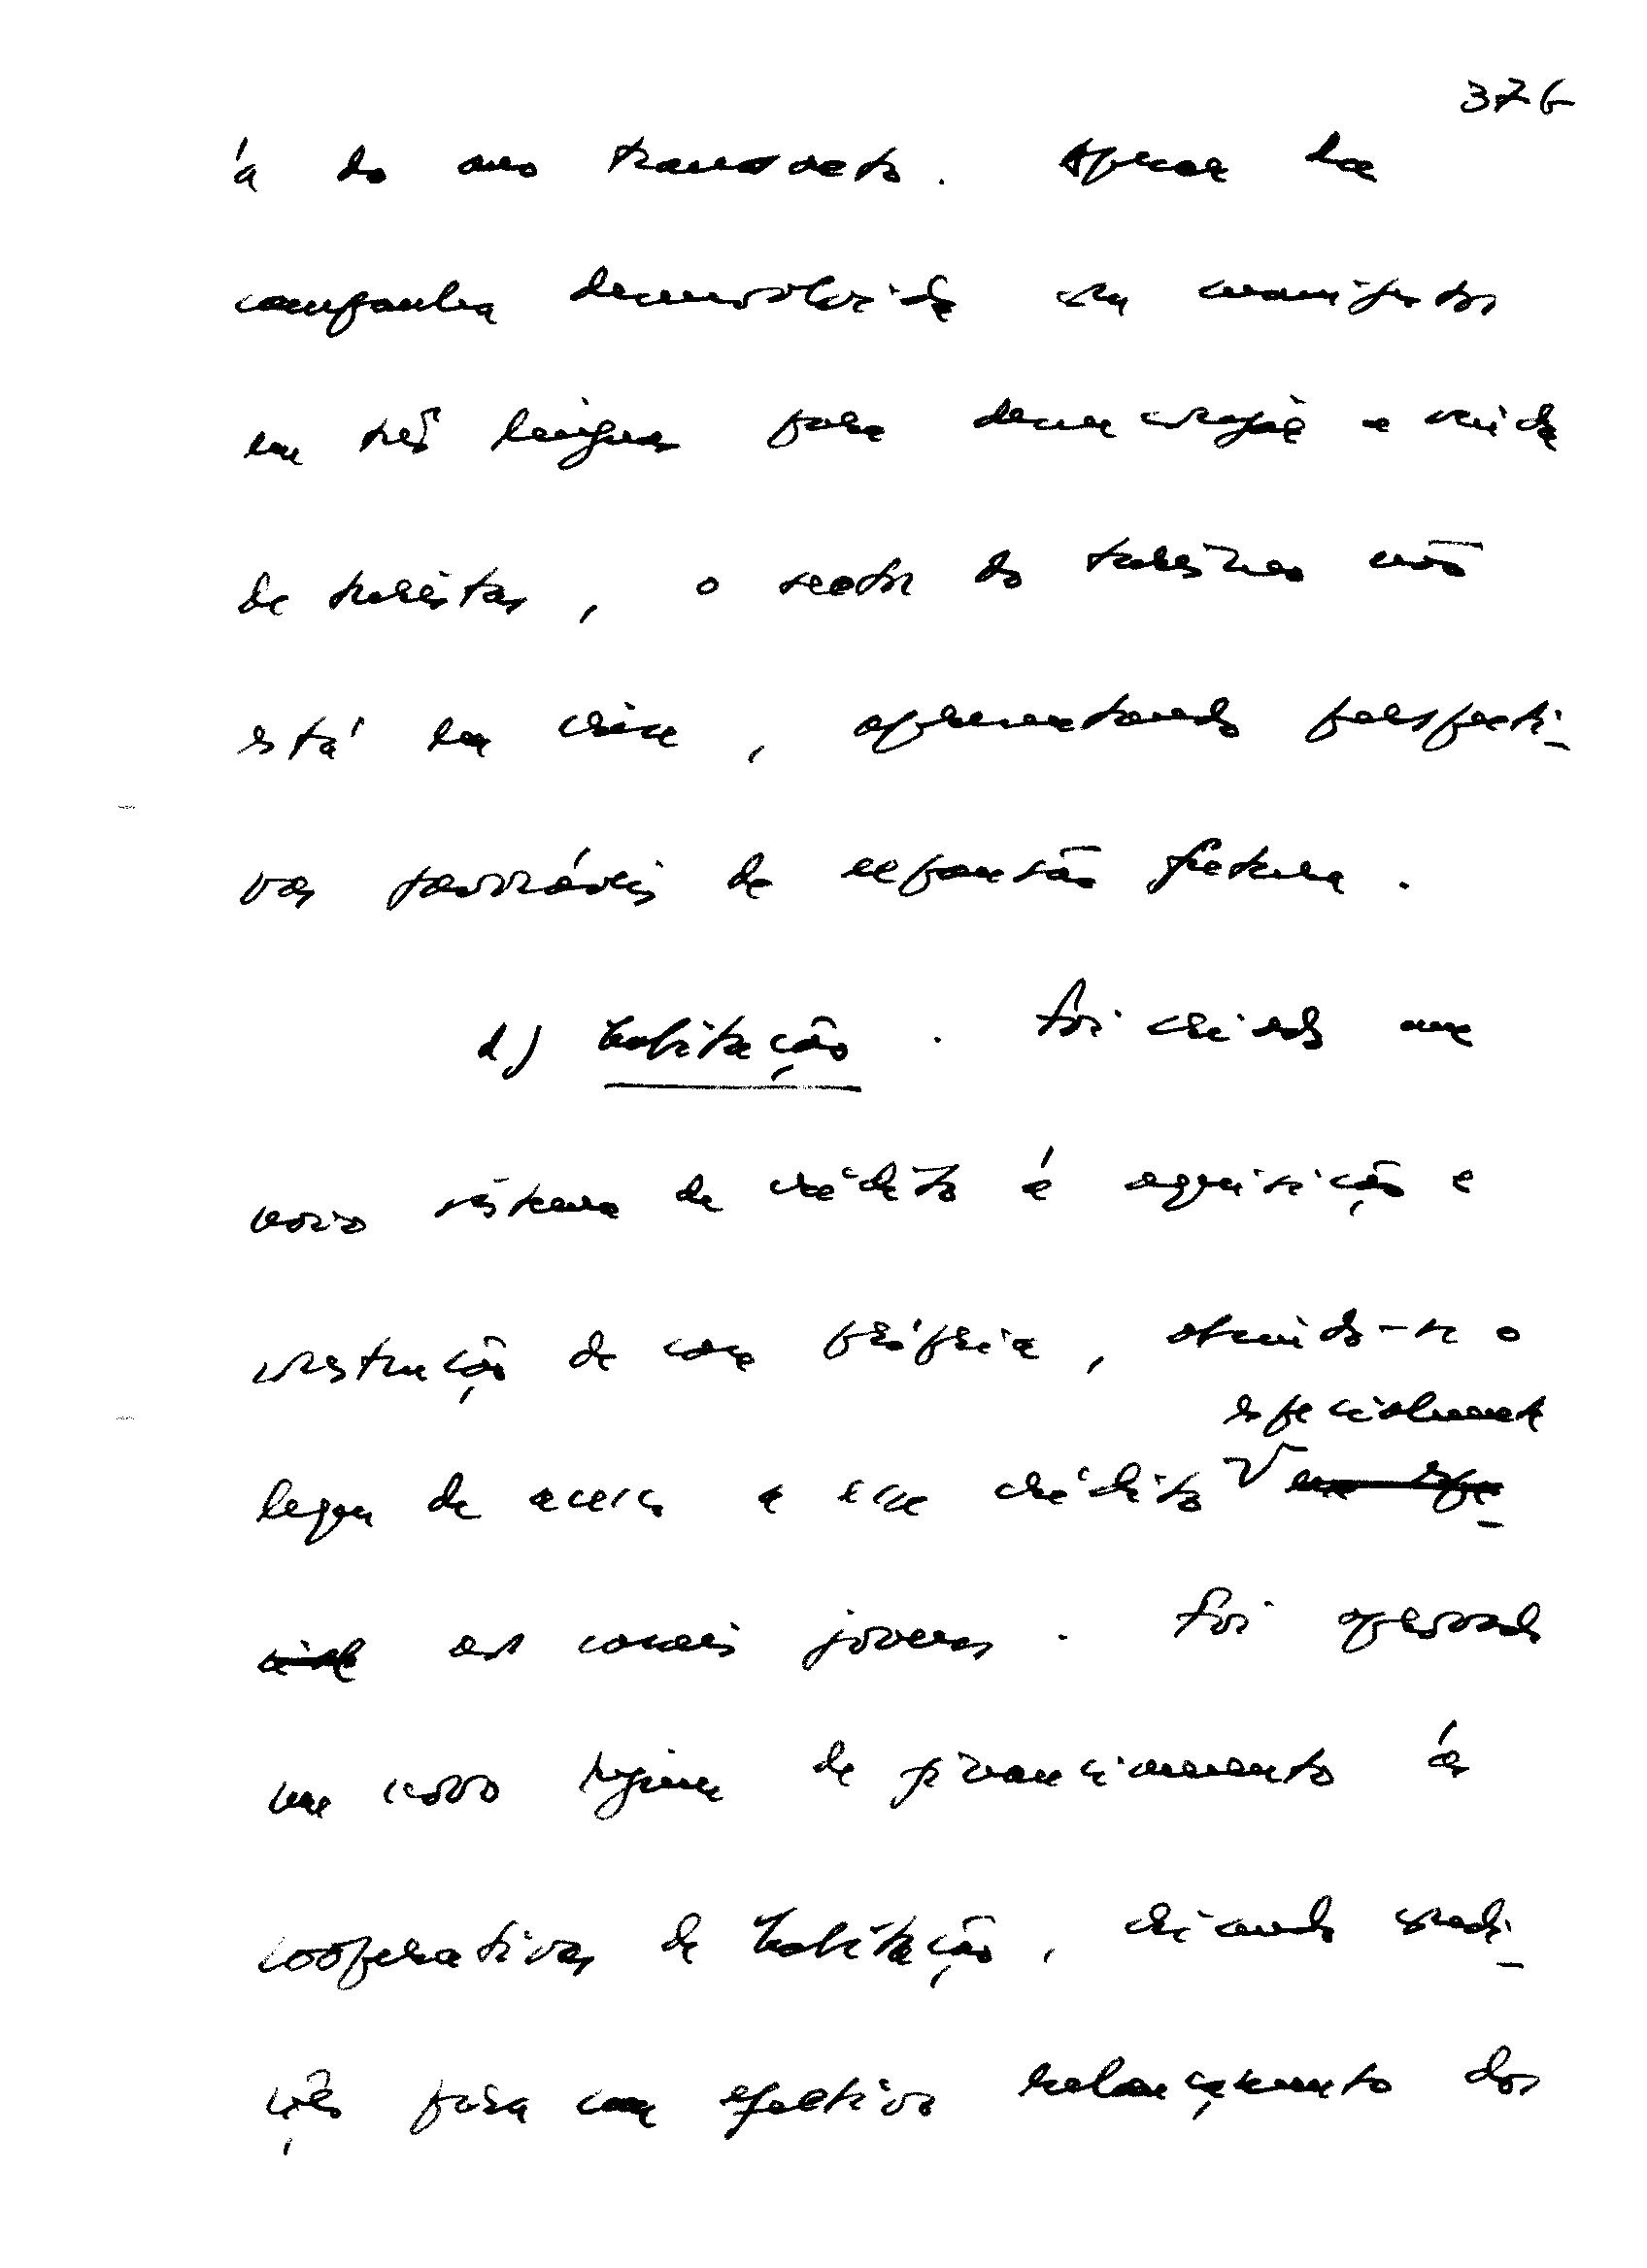 376
à do ano transacto. Apesar da
campanha desenvolvida com manifestos
em três línguas para desencorajar a vinda
de turistas, o sector do turismo não
está em crise, apresentando perspecti-
vas favoráveis de expansão futura.
d) Habitação. Foi criado um
novo sistema de crédito à aquisição e
construção de casa própria, o
especialmente
leque de acesso a esse crédito em espe-
cial aos casais jovens. Foi aprovado
um novo regime de financiamento às
cooperativas de habitação, criando condi-
ções para um efectivo relançamento dos